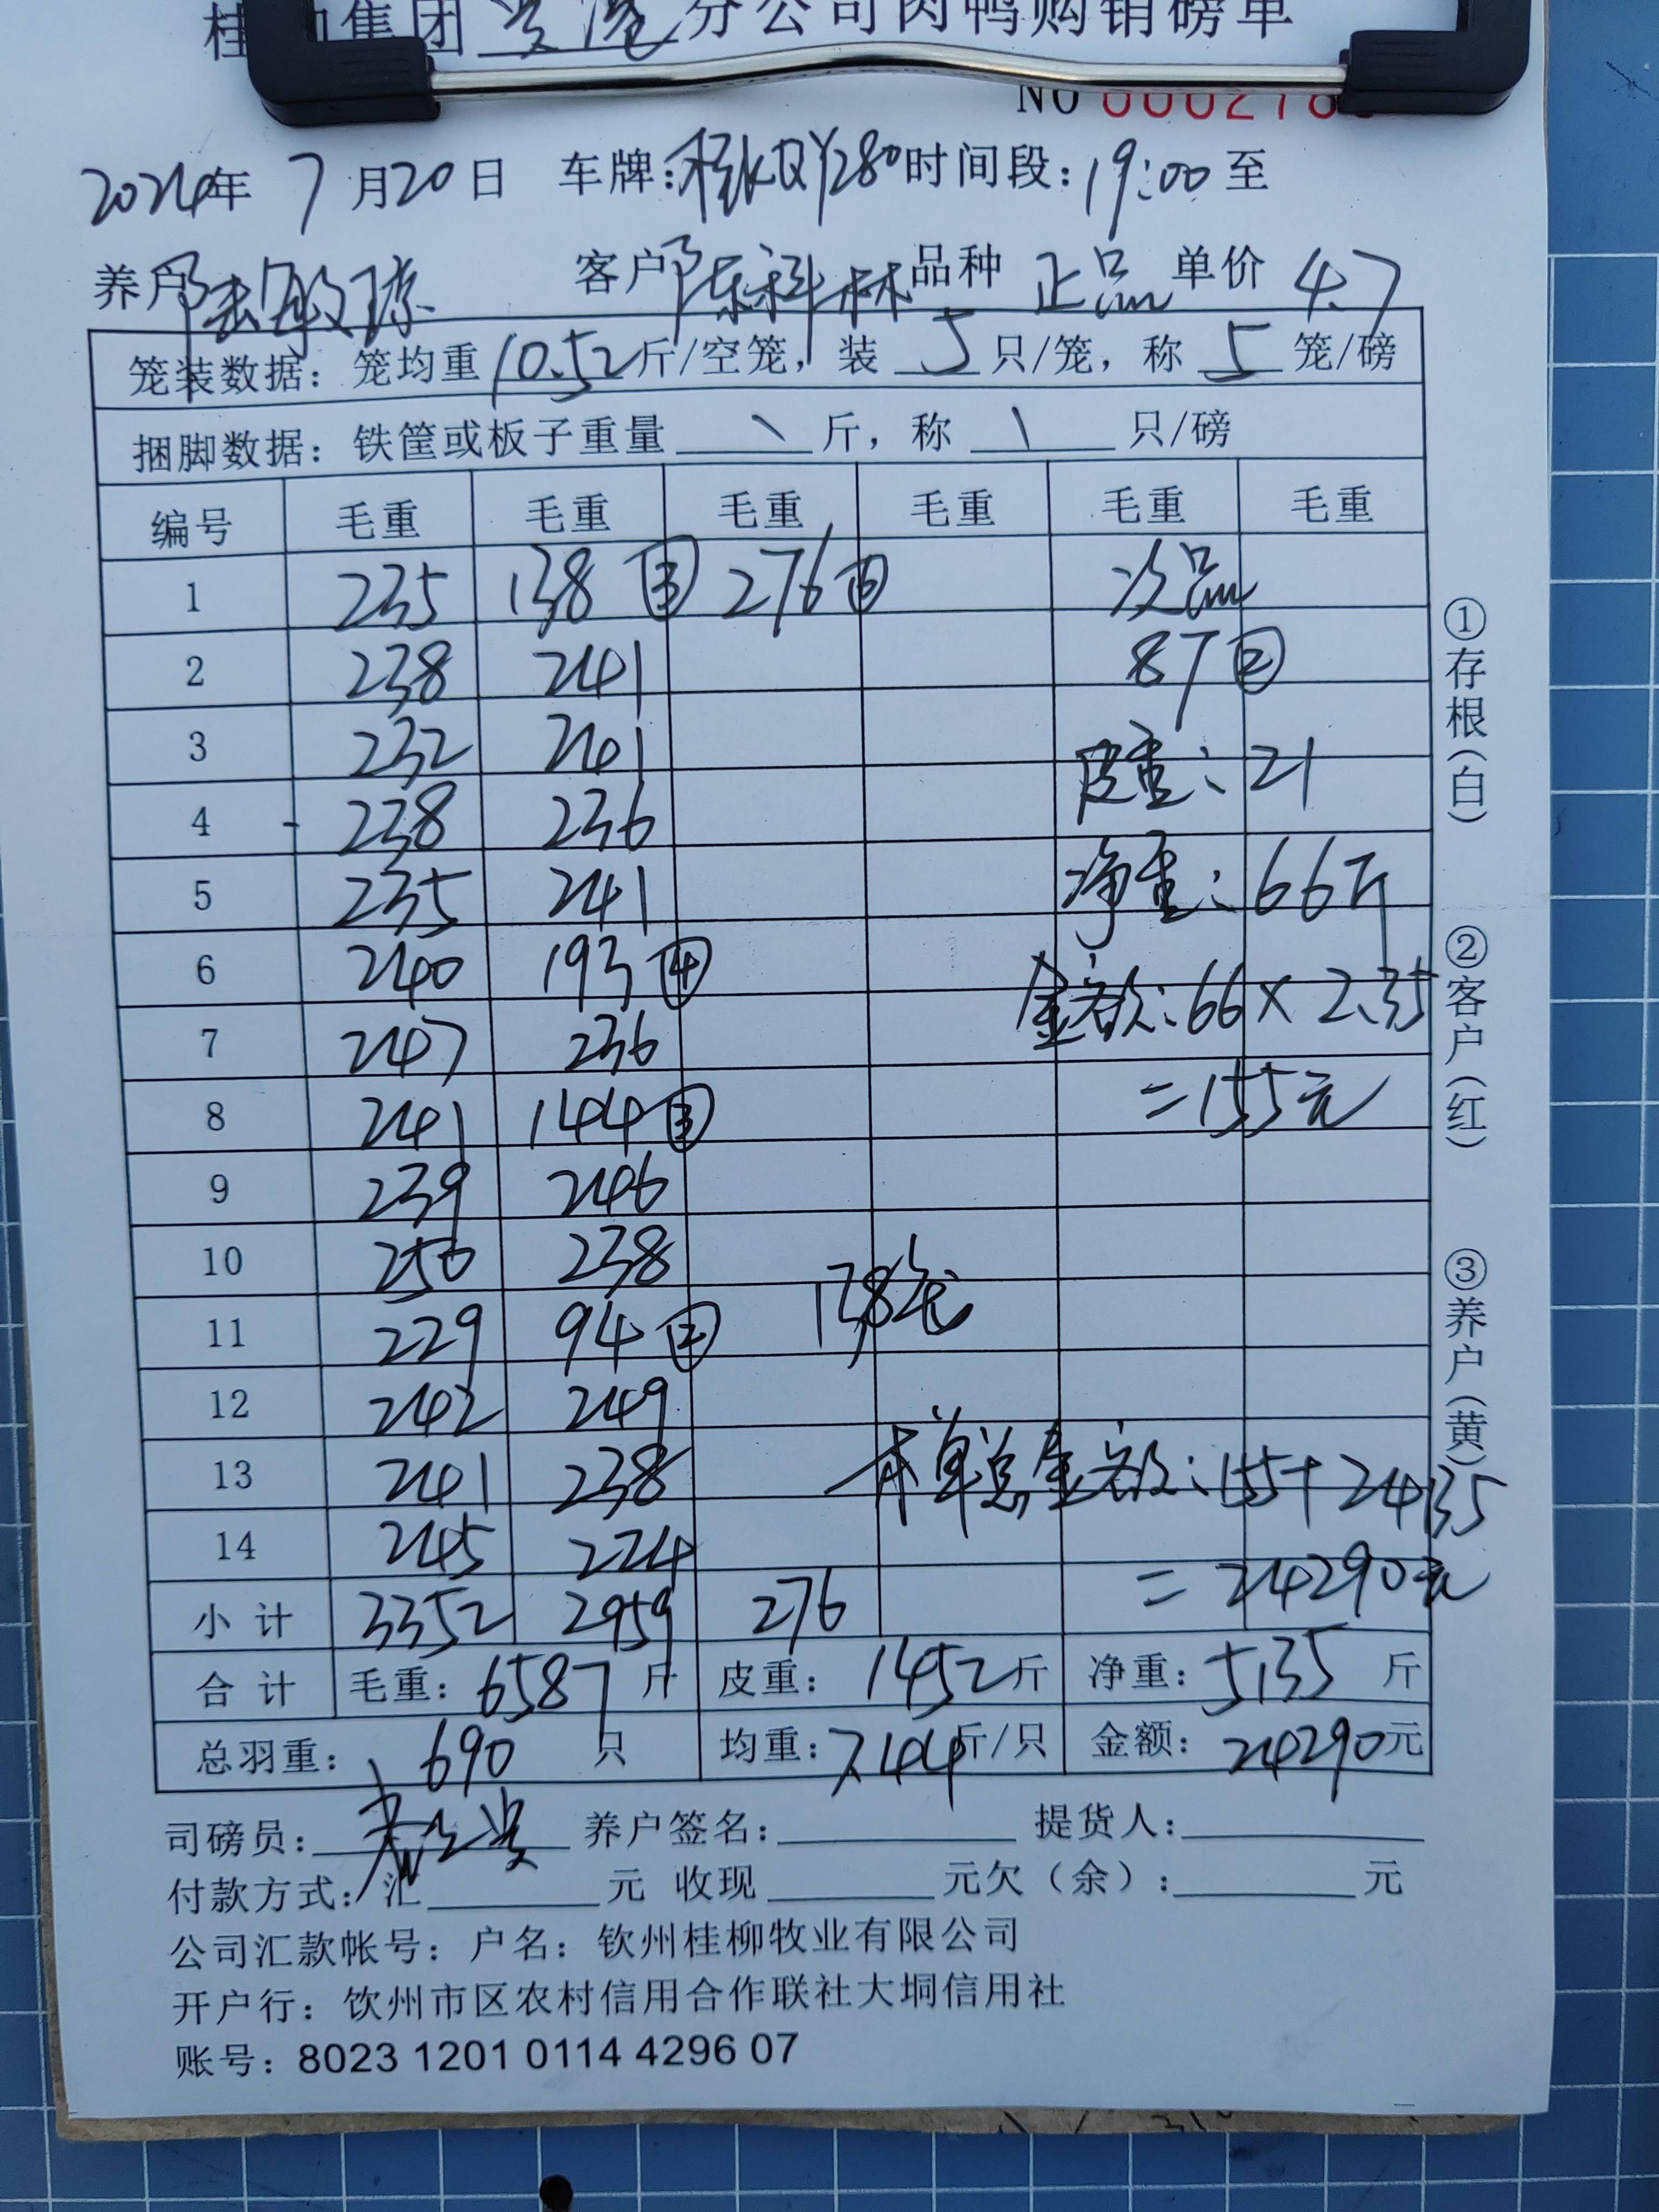 集团贵港分公司肉鸭购销磅单
NO
2024年 7月20日 车牌:桂KQY280时间段:19:00至
养户陆敏琼 客户陈科林品种 正品 单价 4.7
笼装数据:笼均重10.52斤/空笼,装 5 只/笼,称 5 笼/磅
捆脚数据:铁筐或板子重量 \ 斤,称 \ 只/磅
编号 毛重 毛重 毛重 毛重 毛重 毛重
1 235 138 ③ 276 ⑥ 次品
2 238 241 87 ②
3 232 241 皮重:21
4 238 236
5 235 241 净重:66斤
6 240 193 ④
7 247 236 金额:66×2.35
8 241 144 ③ =155元
9 239 246
10 250 238
11 229 94 ② 138笼
12 242 249
13 241 238 本单总金额:155+24135
14 245 224
小计 3352 2959 276 =24290元
合计 毛重:6587斤 皮重:1452斤 净重:5135斤
总羽重:690只 均重:7.44斤/只 金额:24290元
司磅员: 养户签名: 提货人:
付款方式:汇 元 收现 元欠(余): 元
公司汇款帐号:户名:钦州桂柳牧业有限公司
开户行:钦州市区农村信用合作联社大垌信用社
账号:8023 1201 0114 4296 07
①存根(白)
②客户(红)
③养户(黄)